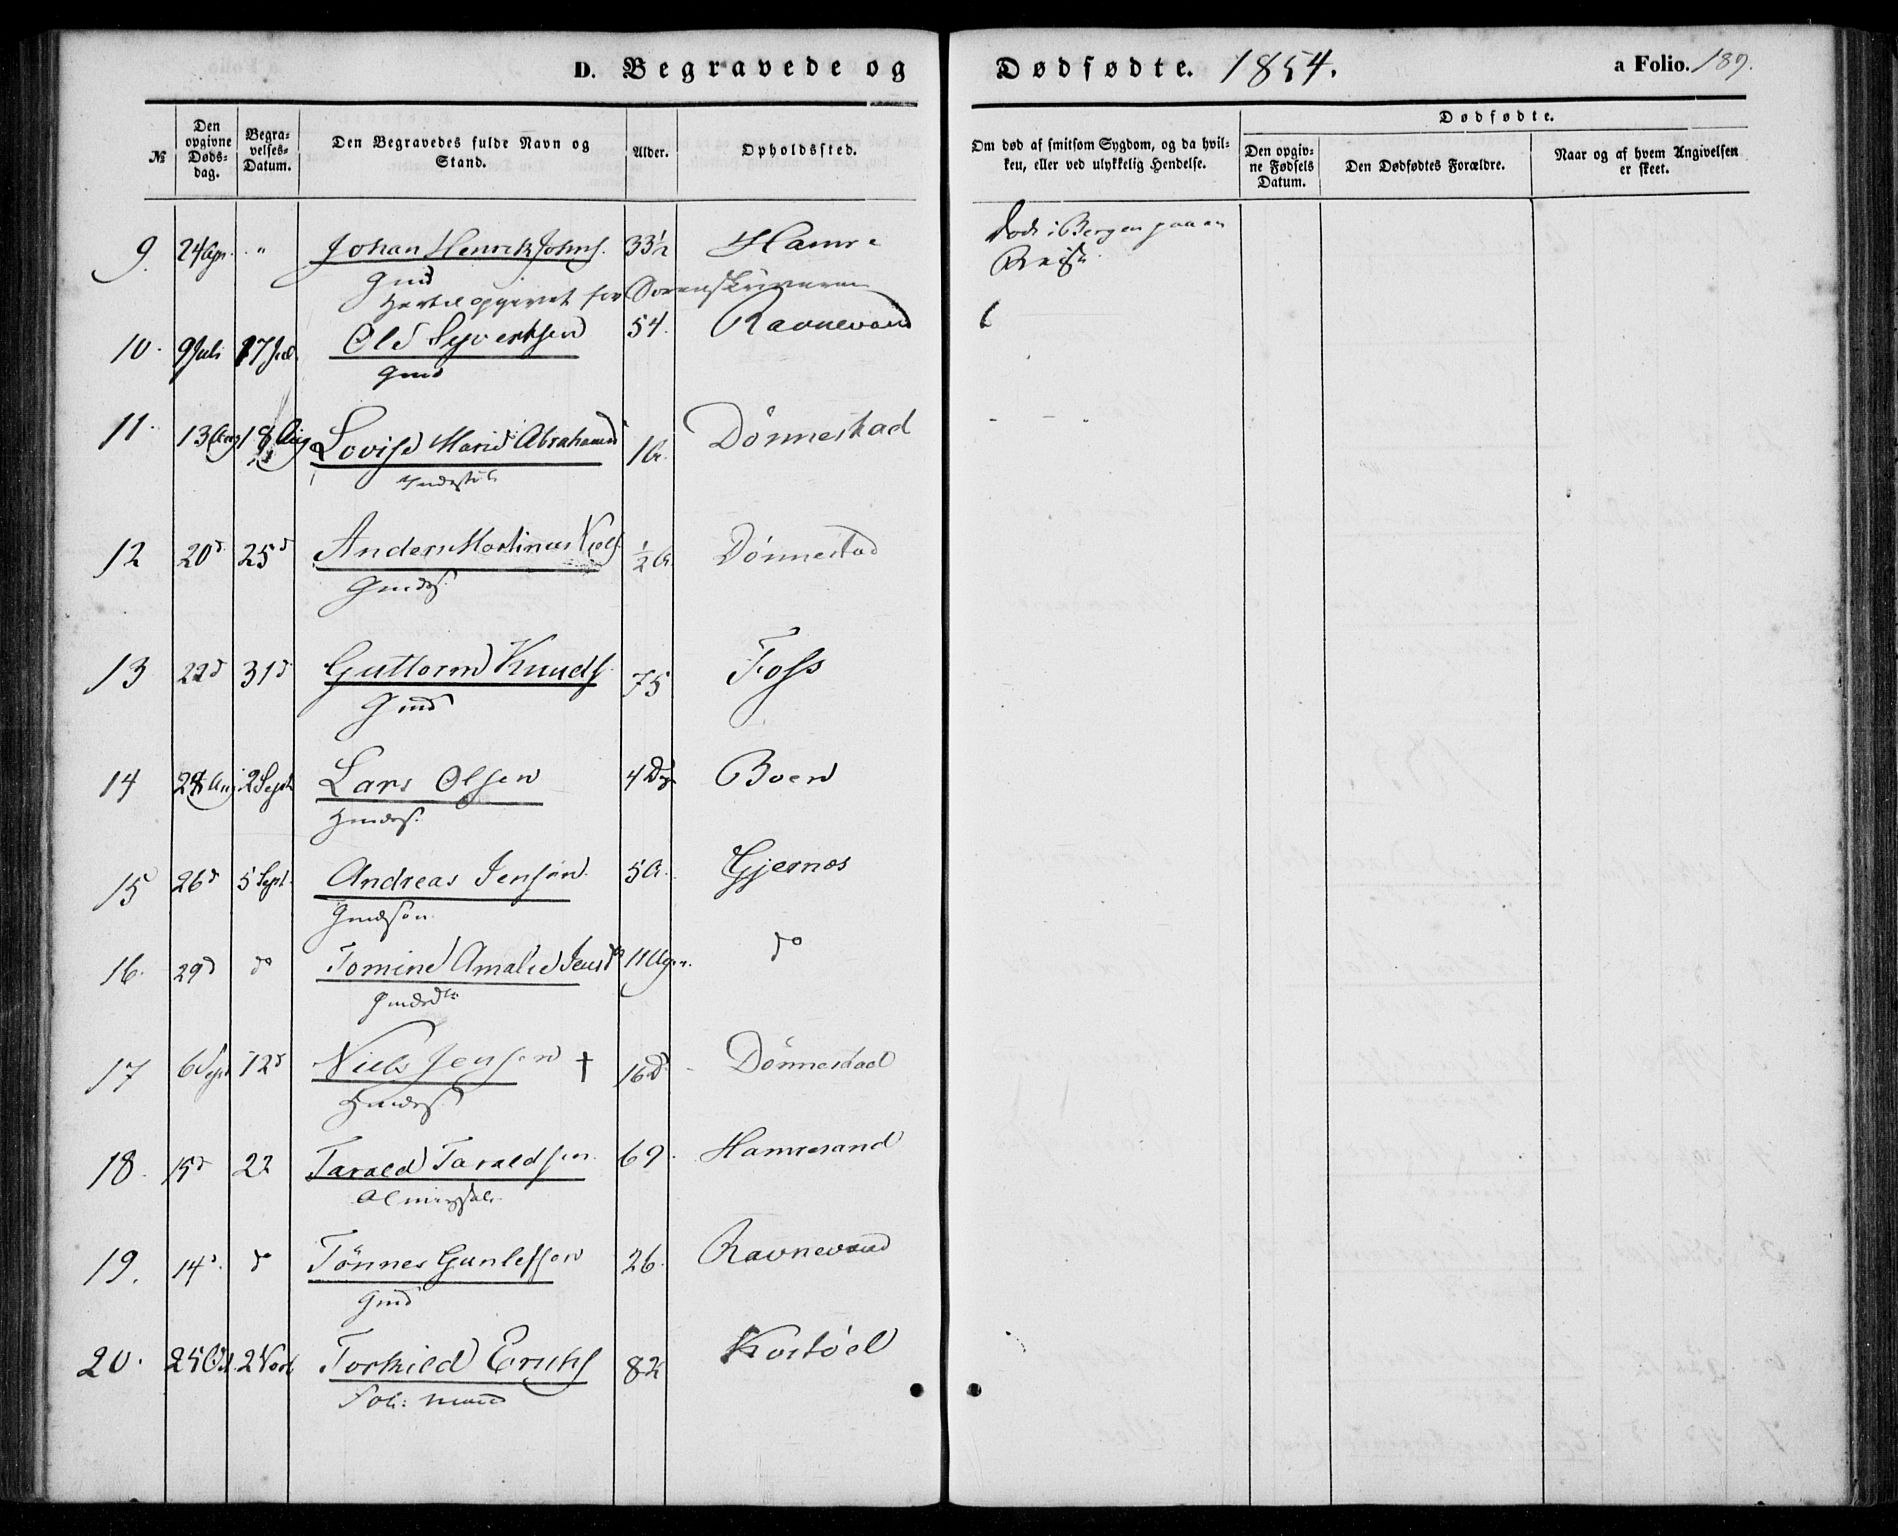 D. Begravede og Dødfødte. 1854. a Folio. 189.
№
Den opgivne Døds-dag.
Begra-velses-Datum.
Den Begravedes fulde Navn og Stand.
Alder.
Opholdssted.
Om død af smitsom Sygdom, og da hvil-ken, eller ved ulykkelig Hendelse.
Dødfødte.
Den opgiv-ne Fødsels Datum.
Den Dødfødtes Forældre.
Naar og af hvem Angivelsen er skeet.
9. 24 Apr. " Johan Henrik Johns. 33½ Hamre Død i Bergen paa en
Gmd Reise.
Hertil opgivet for Sorenskriveren
10. 9 Juli 17 Jul. Ole Syvertsen 54. Ravnevand
Gmd
11. 13 Aug 18 Aug Lovise Marie Abrahamsd 1 A. Dønnestad
Indest.
12 20 d 25 d Anders Martinus Niels. ½ A. Dønnestad
Gmds.
13 22 d 31 d Guttorm Knuds. 75 Foss
Gmd
14 24 Aug 2 Sept Lars Olsen 4 Dg Boen
Hmds.
15 26 d 5 Sept. Andreas Jensen 5 A. Gjernes
Gmdsøn.
16. 29 d do Tomine Amalie Jensd 11 do
Gmdsd
17 6 Sept 12 d Niels Jensen † 16 D. Dønnestad
Hmds.
18. 15 d 22 Tarald Taraldsen 69. Hamresand
19. 14 d. d Tønnes Gunlefsen 26. Ravnevand
Gmd
20. 25 Oct. 2 Novb Torkield Eriks. 82 Kostøel
Fol: mand